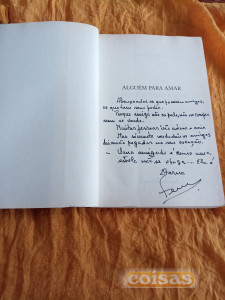 ALGUÉM PARA AMAR
Abençoados os que possuem amigos,
os que tem sem pedir.
Porque amigo não se pede, não se compra
nem se vende.
Muitas pessoas vão e
Mas somente verdadeiros amigos
deixarão pegadas no seu coração.
- Uma amizade é
não se apaga... Ela é
Eterna
coisas